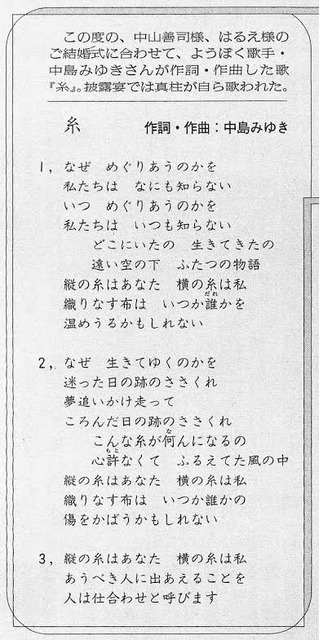 この度の、中山善司様、はるえ様の
ご結婚式に合わせて、ようぼく歌手・
中島みゆきさんが作詞・作曲した歌
『糸』。披露宴では真柱が自ら歌われた。
糸　作詞・作曲：中島みゆき
1，なぜ　めぐりあうのかを
私たちは　なにも知らない
いつ　めぐりあうのかを
私たちは　いつも知らない
どこにいたの　生きてきたの
遠い空の下　ふたつの物語
縦の糸はあなた　横の糸は私
織りなす布は　いつか誰かを
温めうるかもしれない
2，なぜ　生きてゆくのかを
迷った日の跡のささくれ
夢追いかけ走って
ころんだ日の跡のささくれ
こんな糸が何んになるの
心許なくて　ふるえてた風の中
縦の糸はあなた　横の糸は私
織りなす布は　いつか誰かの
傷をかばうかもしれない
3，縦の糸はあなた　横の糸は私
あうべき人に出あえることを
人は仕合わせと呼びます